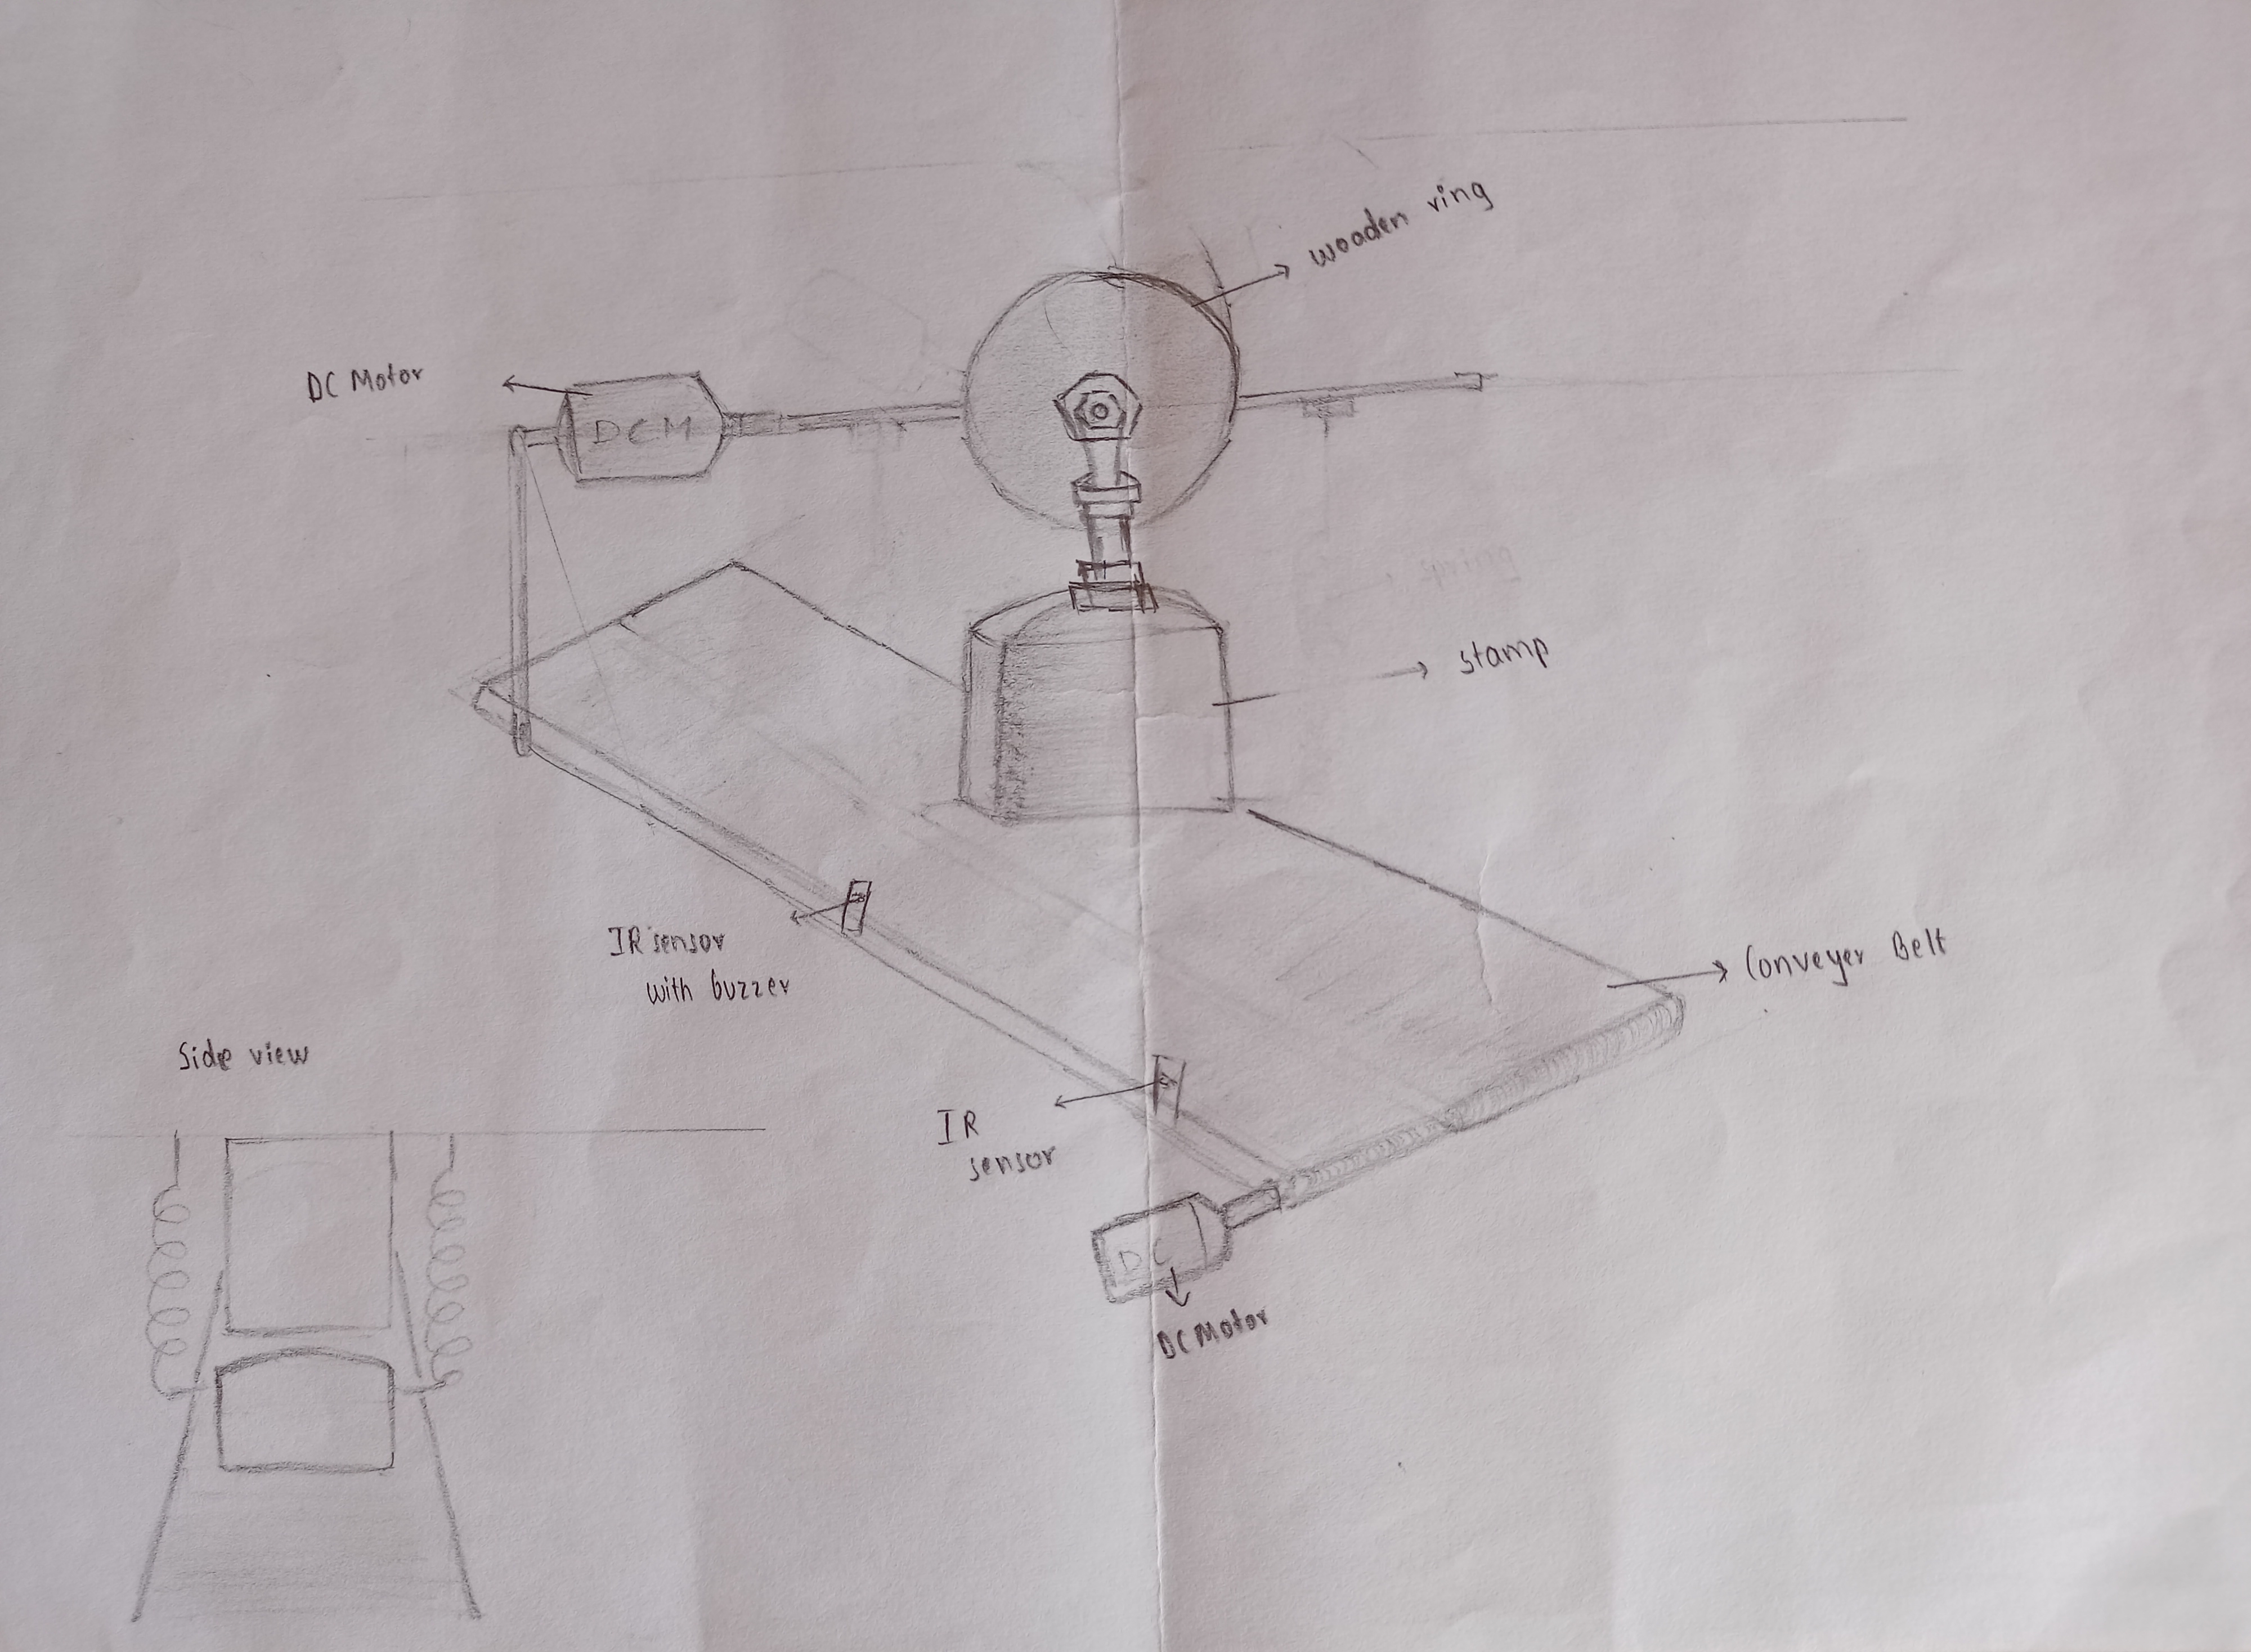 wooden ring
DC Motor
DCM
stamp
IR sensor
with buzzer
Conveyer Belt
Side view
IR
sensor
DC
DC Motor